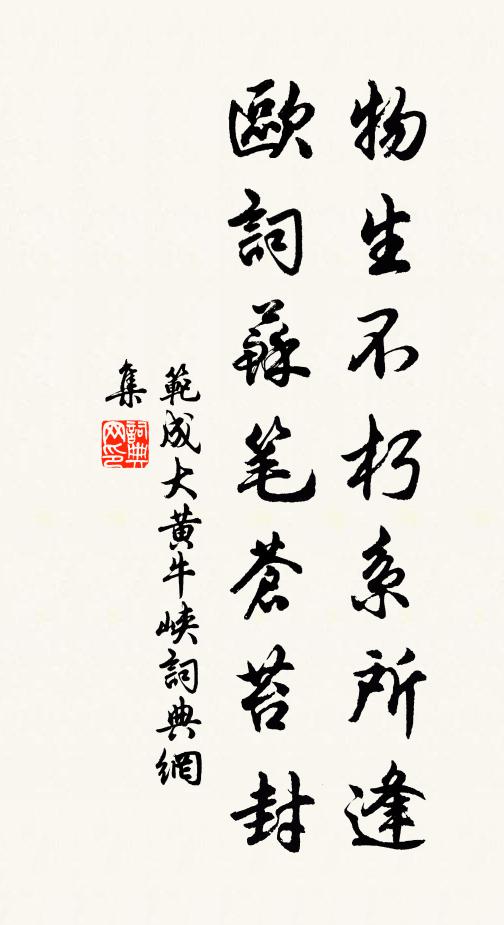 物生不朽系所逢
歐詞蘇笔蒼苔封
範成大黄牛峽詞典網
集
詞典网印